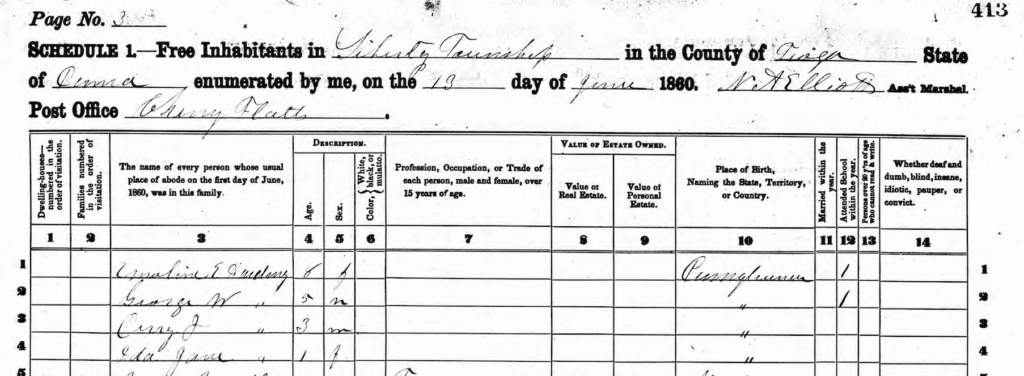 413
Page No. 3
SCHEDULE 1.—Free Inhabitants in Liberty Township in the County of Tioga State
of Penna enumerated by me, on the 13 day of June 1860. N. A. Elliott Ass't Marshal.
Post Office Cherry Flatts.
DESCRIPTION. VALUE OF ESTATE OWNED.
Dwelling-houses—numbered in the order of visitation. Families numbered in the order of visitation. The name of every person whose usual place of abode on the first day of June, 1860, was in this family. Age. Sex. Color, {White, black, or mulatto. Profession, Occupation, or Trade of each person, male and female, over 15 years of age. Value of Real Estate. Value of Personal Estate. Place of Birth, Naming the State, Territory, or Country. Married within the year. Attended School within the year. Persons over 20 y'rs of age who cannot read & write. Whether deaf and dumb, blind, insane, idiotic, pauper, or convict.
1 2 3 4 5 6 7 8 9 10 11 12 13 14
1 Emaline E f 1 1
2 George W " 5 m " 1 2
3 J " 3 m " 3
4 Ida Jane " 1 f " 4
5